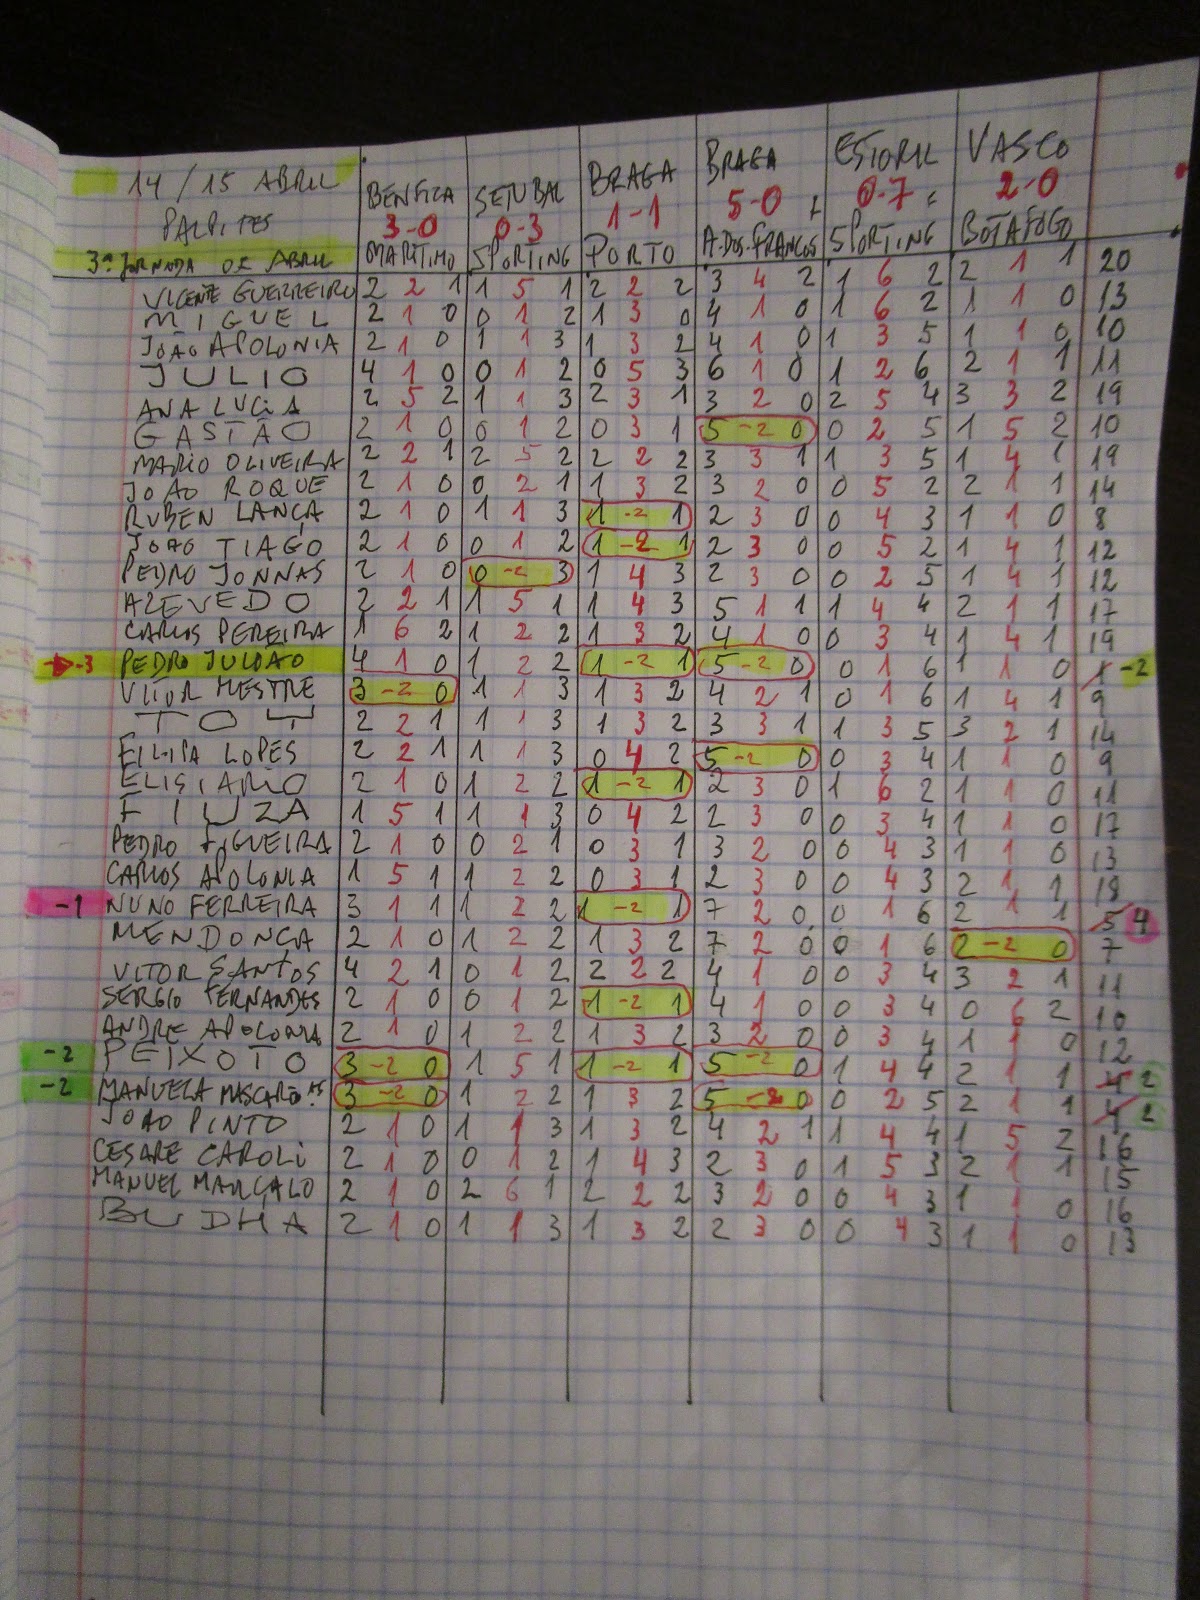 14/15 ABRIL BENFICA SETUBAL BRAGA BRAGA ESTORIL VASCO
PALPITES 3-0 0-3 1-1 5-0 0-7 2-0
3ª JORNADA DE ABRIL MARITIMO SPORTING PORTO A.DOS-FRANCOS SPORTING BOTAFOGO
VICENTE GUERREIRO 2 2 1 1 5 1 2 2 2 3 4 2 1 6 2 2 1 1 20
MIGUEL 2 1 0 0 1 2 1 3 0 4 1 0 1 6 2 1 1 0 13
JOÃO APOLONIA 2 1 0 1 1 3 1 3 2 4 1 0 1 3 5 1 1 0 10
JULIO 4 1 0 0 1 2 0 5 3 6 1 0 1 2 6 2 1 1 11
ANA LUCIA 2 5 2 1 1 3 2 3 1 3 2 0 2 5 4 3 3 2 19
GASTÃO 2 1 0 0 1 2 0 3 1 5 -2 0 0 2 5 1 5 2 10
MARIO OLIVEIRA 2 2 1 2 5 2 2 2 2 3 3 1 1 3 5 1 4 1 19
JOAO ROQUE 2 1 0 0 2 1 1 3 2 3 2 0 0 5 2 2 1 1 14
RUBEN LANÇA 2 1 0 1 1 3 1 -2 1 2 3 0 0 4 3 1 1 0 8
JOAO TIAGO 2 1 0 0 1 2 1 -2 1 2 3 0 0 5 2 1 4 1 12
PEDRO JONNAS 2 1 0 0 -2 3 1 4 3 2 3 0 0 2 5 1 4 1 12
AZEVEDO 2 2 1 1 5 1 1 4 3 5 1 1 1 4 4 2 1 1 17
CARLOS PEREIRA 1 6 2 1 2 2 1 3 2 4 1 0 0 3 4 1 4 1 19
-3 PEDRO JULIÃO 4 1 0 1 2 2 1 -2 1 5 -2 0 0 1 6 1 1 0 1 -2
VITOR MESTRE 3 -2 0 1 1 3 1 3 2 4 2 1 0 1 6 1 4 1 9
TOY 2 2 1 1 1 3 1 3 2 3 3 1 1 3 5 3 2 1 14
FILIPA LOPES 2 2 1 1 1 3 0 4 2 5 -2 0 0 3 4 1 1 0 9
ELISIARIO 2 1 0 1 2 2 1 -2 1 2 3 0 1 6 2 1 1 0 11
FIUZA 1 5 1 1 1 3 0 4 2 2 3 0 0 3 4 1 1 0 17
PEDRO FIGUEIRA 2 1 0 0 2 1 0 3 1 3 2 0 0 4 3 1 1 0 13
CARLOS APOLONIA 1 5 1 1 2 2 0 3 1 2 3 0 0 4 3 2 1 1 18
-1 NUNO FERREIRA 3 1 1 1 2 2 1 -2 1 7 2 0 0 1 6 2 1 1 5 4
MENDONÇA 2 1 0 1 2 2 1 3 2 7 2 0 0 1 6 2 -2 0 7
VITOR SANTOS 4 2 1 0 1 2 2 2 2 4 1 0 0 3 4 3 2 1 11
SERGIO FERNANDES 2 1 0 0 1 2 1 -2 1 4 1 0 0 3 4 0 6 2 10
ANDRE APOLONIA 2 1 0 1 2 2 1 3 2 3 2 0 0 3 4 1 1 0 12
-2 PEIXOTO 3 -2 0 1 5 1 1 -2 1 5 -2 0 1 4 4 2 1 1 4 2
-2 MANUELA MASCARÑAS 3 -2 0 1 2 2 1 3 2 5 -2 0 0 2 5 2 1 1 4 2
JOAO PINTO 2 1 0 1 1 3 1 3 2 4 2 1 1 4 4 1 5 2 16
CESARE CAROLI 2 1 0 0 1 2 1 4 3 2 3 0 1 5 3 2 1 1 15
MANUEL MARÇALO 2 1 0 2 6 1 2 2 2 3 2 0 0 4 3 1 1 0 16
BUDHA 2 1 0 1 1 3 1 3 2 2 3 0 0 4 3 1 1 0 13